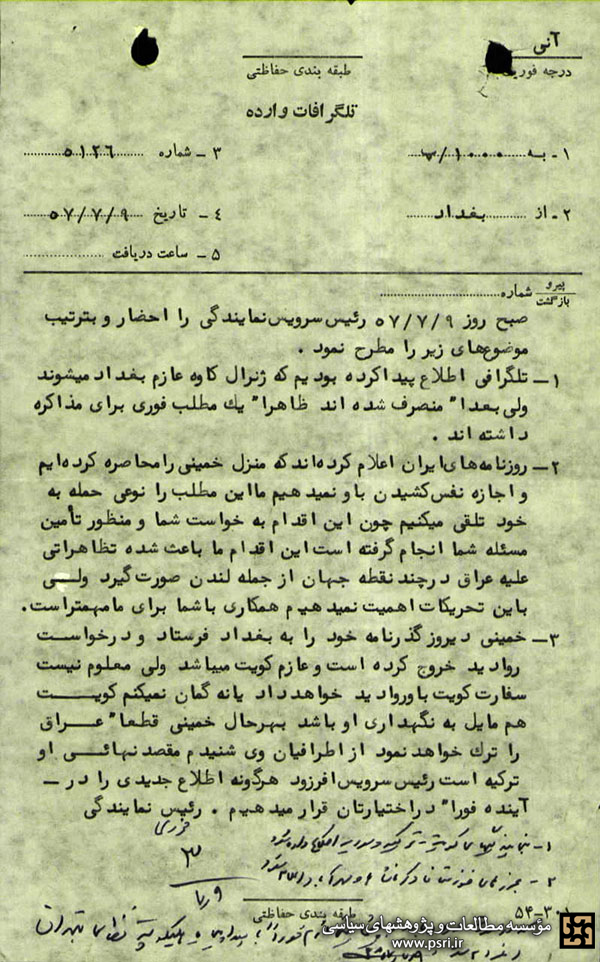 آنی
درجه فوریت
طبقه بندی حفاظتی
تلگرافات وارده
۱ـ به ۱۰۰۰۰/ب ۳ ـ شماره ۵۱۲۶
۲ـ از بغداد ۴ ـ تاریخ ۵۷/۷/۹
۵ ـ ساعت دریافت
پیرو
بازگشت
شماره
صبح روز ۵۷/۷/۹ رئیس سرویس نمایندگی را احضار و بترتیب
موضوع‌های زیر را مطرح نمود .
۱ـ تلگرافی اطلاع پیدا کرده بودیم که ژنرال کاوه عازم بغداد میشوند
ولی بعدا" منصرف شده اند ظاهرا" یك مطلب فوری برای مذاکره
داشته اند .
۲ـ روزنامه‌های ایران اعلام کرده‌اند که منزل خمینی را محاصره کرده‌ایم
و اجازه نفس کشیدن باو نمیدهیم ما این مطلب را نوعی حمله به
خود تلقی میکنیم چون این اقدام به خواست شما و منظور تأمین
مسئله شما انجام گرفته است این اقدام ما باعث شده تظاهراتی
علیه عراق در چند نقطه جهان از جمله لندن صورت گیرد ولـی
باین تحریکات اهمیت نمیدهیم همکاری با شما برای ما مهمتر است.
۳ـ خمینی دیروز گذرنامه خود را به بغداد فرستاد و درخواست
روادید خروج کرده است و عازم کویت میباشد ولی معلوم نیست
سفارت کویت باو روادید خواهد داد یا نه گمان نمیکنم کویـت
هم مایل به نگهداری او باشد بهرحال خمینی قطعا" عـراق
را ترك خواهد نمود از اطرافیان وی شنیدم مقصد نهائـی او
ترکیه است رئیس سرویس افزود هرگونه اطلاع جدیدی را در ـ
آینده فورا" در اختیارتان قرار میدهیم . رئیس نمایندگی
۳
۹/۷
طبقه بندی حفاظتی
۵۴-۳۰۱
مؤسسه مطالعات و پژوهشهای سیاسی
www.psri.ir